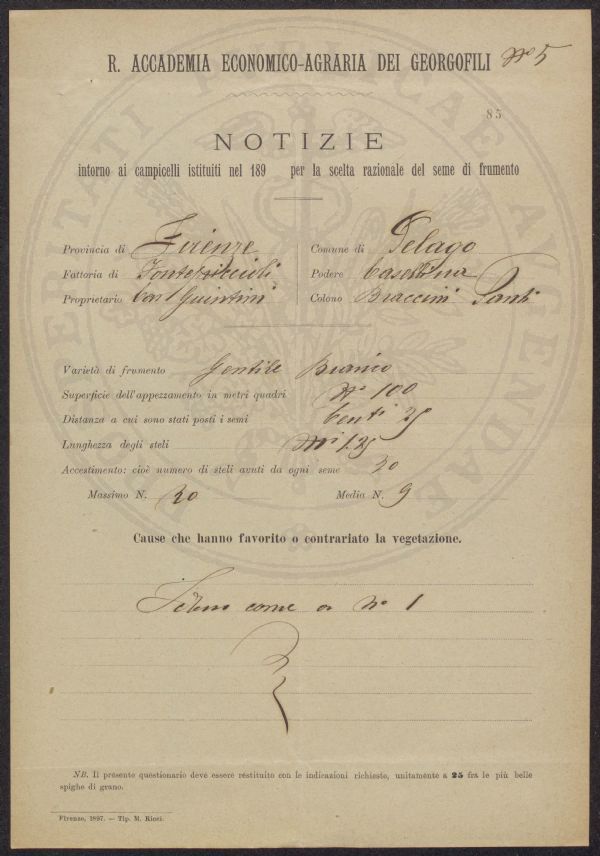 R. ACCADEMIA ECONOMICO-AGRARIA DEI GEORGOFILI Nº 5
83
NOTIZIE
intorno ai campicelli istituiti nel 189 per la scelta razionale del seme di frumento
Provincia di Firenze
Fattoria di
Proprietario Guintini
Comune di Pelago
Podere Casellina
Colono Braccini Santi
Varietà di frumento Gentile Bianco
Superficie dell'appezzamento in metri quadri Nº 100
Distanza a cui sono stati posti i semi Centi 25
Lunghezza degli steli Mi 1.25
Accestimento: cioè numero di steli avuti da ogni seme 20
Massimo N. 20 Media N. 9
Cause che hanno favorito o contrariato la vegetazione.
Idem come a Nº 1
NB. Il presente questionario deve essere restituito con le indicazioni richieste, unitamente a 25 fra le più belle
spighe di grano.
Firenze, 1897. — Tip. M. Ricci.